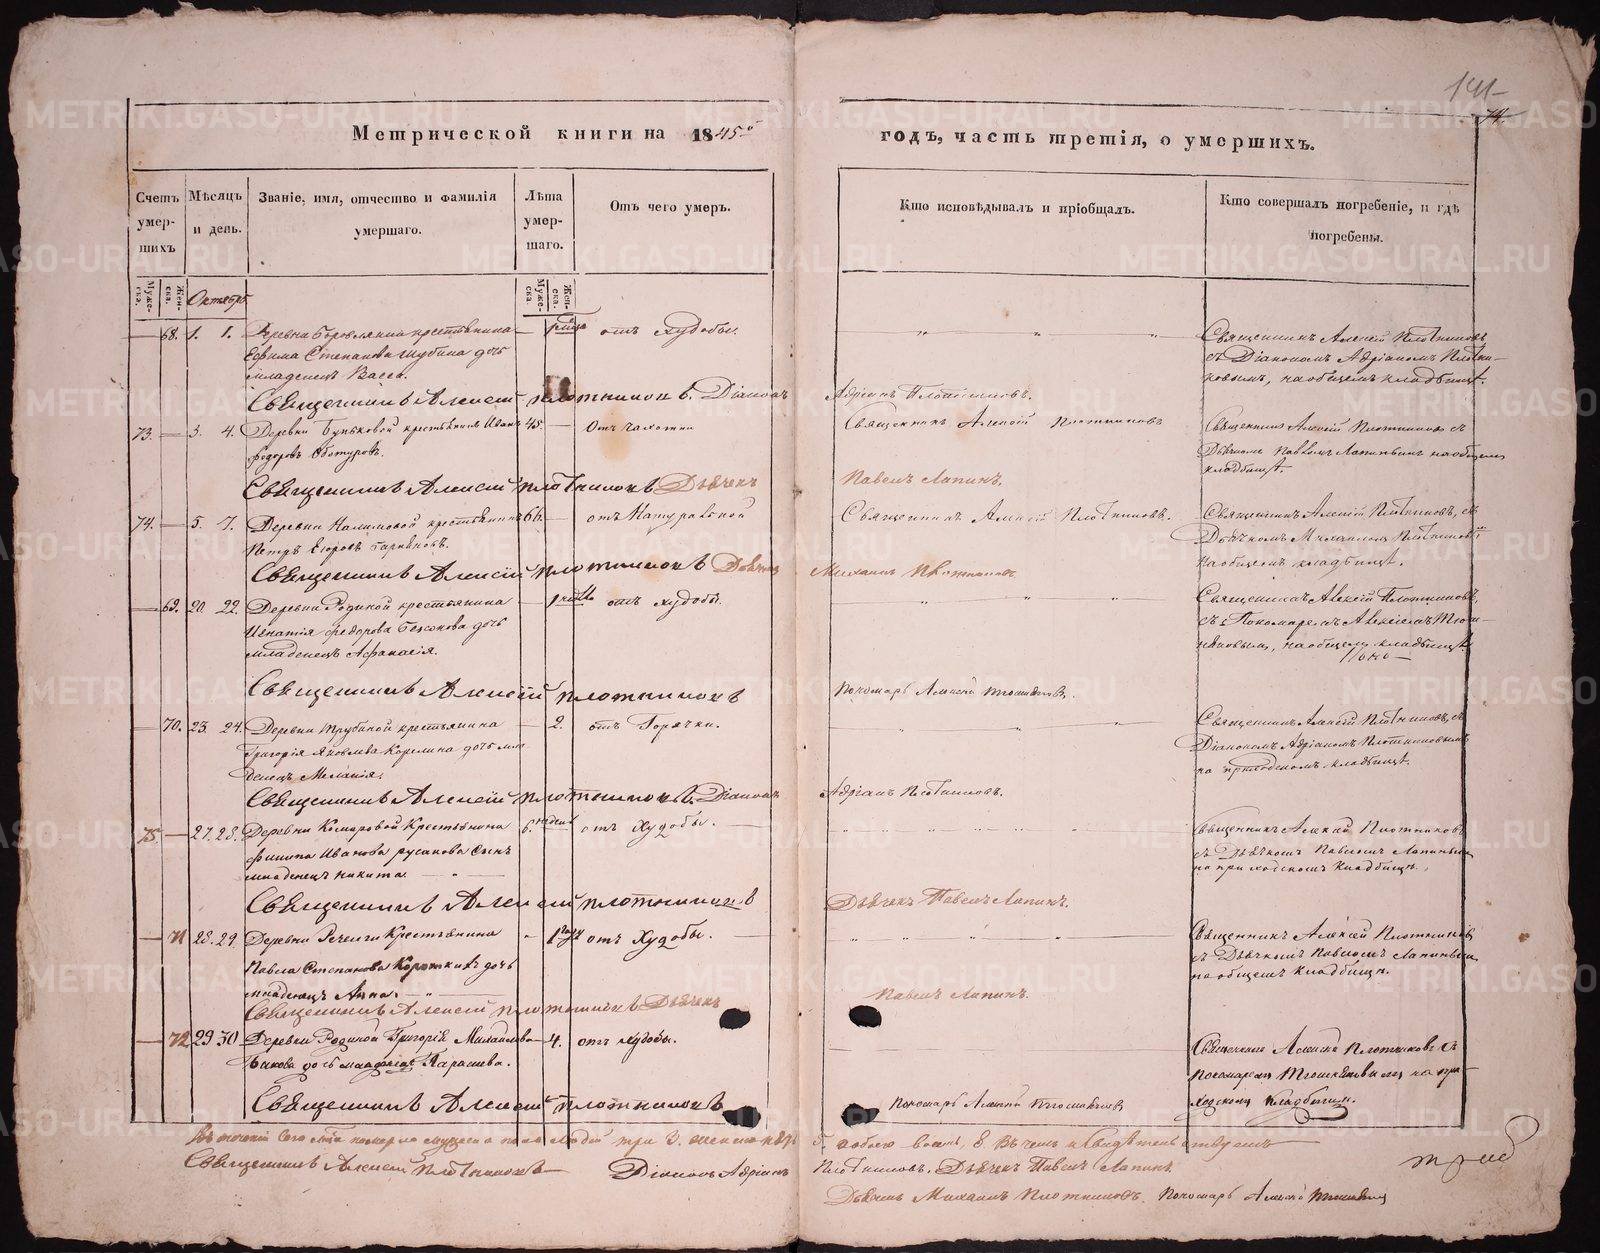 141
74.
Метрической книги на 1845 годъ, часть третія, о умершихъ.
Счетъ умер-шихъ
Мѣсяцъ и день.
Званіе, имя, отчество и фамилія умершаго.
Лѣта умер-шаго.
Отъ чего умеръ.
Кто исповѣдывалъ и пріобщалъ.
Кто совершалъ погребеніе, и гдѣ погребены.
Муже-ска.
Жен-ска.
Октябрь.
Муже-ска.
Жен-ска.
68. 1. 1. Деревни Боровлянки крестьянина отъ худобы. Священникъ Алексій Плотниковъ
Ефима Степанова Шубина дочь съ Діакономъ Адріаномъ Плотни-
младенецъ Васса. ковымъ, на общемъ кладбищѣ.
Священникъ Алексій Плотниковъ. Діаконъ Адріанъ Плотниковъ.
73. 3. 4. Деревни Буньковой крестьянинъ Иванъ 45. Отъ чахотки Священникъ Алексій Плотниковъ Священникъ Алексій Плотниковъ съ
Федоровъ Дьячкомъ Павломъ Лапинымъ на общемъ
кладбищѣ.
Священникъ Алексій Плотниковъ Дьячекъ Павелъ Лапинъ.
74. 5. 7. Деревни Калимовой крестьянинъ 66. отъ Натуральной Священникъ Алексій Плотниковъ. Священникъ Алексій Плотниковъ, съ
Петръ Егоровъ Дьячкомъ Михаиломъ Плотниковымъ
на общемъ кладбищѣ.
Священникъ Алексій Плотниковъ Дьячекъ Михаилъ Плотниковъ
69. 20. 22. Деревни Родиной крестьянина отъ худобы. Священникъ Алексій Плотниковъ,
Игнатія Федорова дочь съ Пономаремъ Алексіемъ
младенецъ Афанасія. на общемъ кладбищѣ
Священникъ Алексій Плотниковъ Пономарь Алексій
70. 23. 24. Деревни Трубиной крестьянина 2. отъ Горячки. Священникъ Алексій Плотниковъ, съ
Григорія Яковлева Корелина дочь мла- Діакономъ Адріаномъ Плотниковымъ
денецъ Меланія. на приходскомъ кладбищѣ.
Священникъ Алексій Плотниковъ. Діаконъ Адріанъ Плотниковъ.
75. 27. 28. Деревни Комаровой Крестьянина 6. недель отъ Худобы. Священникъ Алексій Плотниковъ
Филипа Иванова Русакова Сынъ съ Дьячкомъ Павломъ Лапинымъ
младенецъ Никита. на приходскомъ Кладбищѣ.
Священникъ Алексій Плотниковъ Дьячекъ Павелъ Лапинъ.
71 28. 29. Деревни Речелги Крестьянина отъ Худобы. Священникъ Алексій Плотниковъ
Павла Степанова Короткихъ дочь съ Дьячкомъ Павломъ Лапинымъ
младенецъ Анна. на общемъ Кладбищѣ.
Священникъ Алексій Плотниковъ Дьячекъ Павелъ Лапинъ.
72 29 30 Деревни Родиной Григорія Михайлова 4. отъ худобы. Священникъ Алексій Плотниковъ съ
дочь младенецъ Параскева. пономаремъ на при-
ходскомъ кладбищѣ.
Священникъ Алексій Плотниковъ Пономарь Алексій
Въ теченіи сего мужеска пола людей три 3. 5. обоего восемь 8 Въ чемъ и свидѣтельствуемъ
Священникъ Алексій Плотниковъ Діаконъ Адріанъ Плотниковъ. Дьячекъ Павелъ Лапинъ.
Дьячекъ Михаилъ Плотниковъ. Пономарь Алексій
METRIKI.GASO-URAL.RU